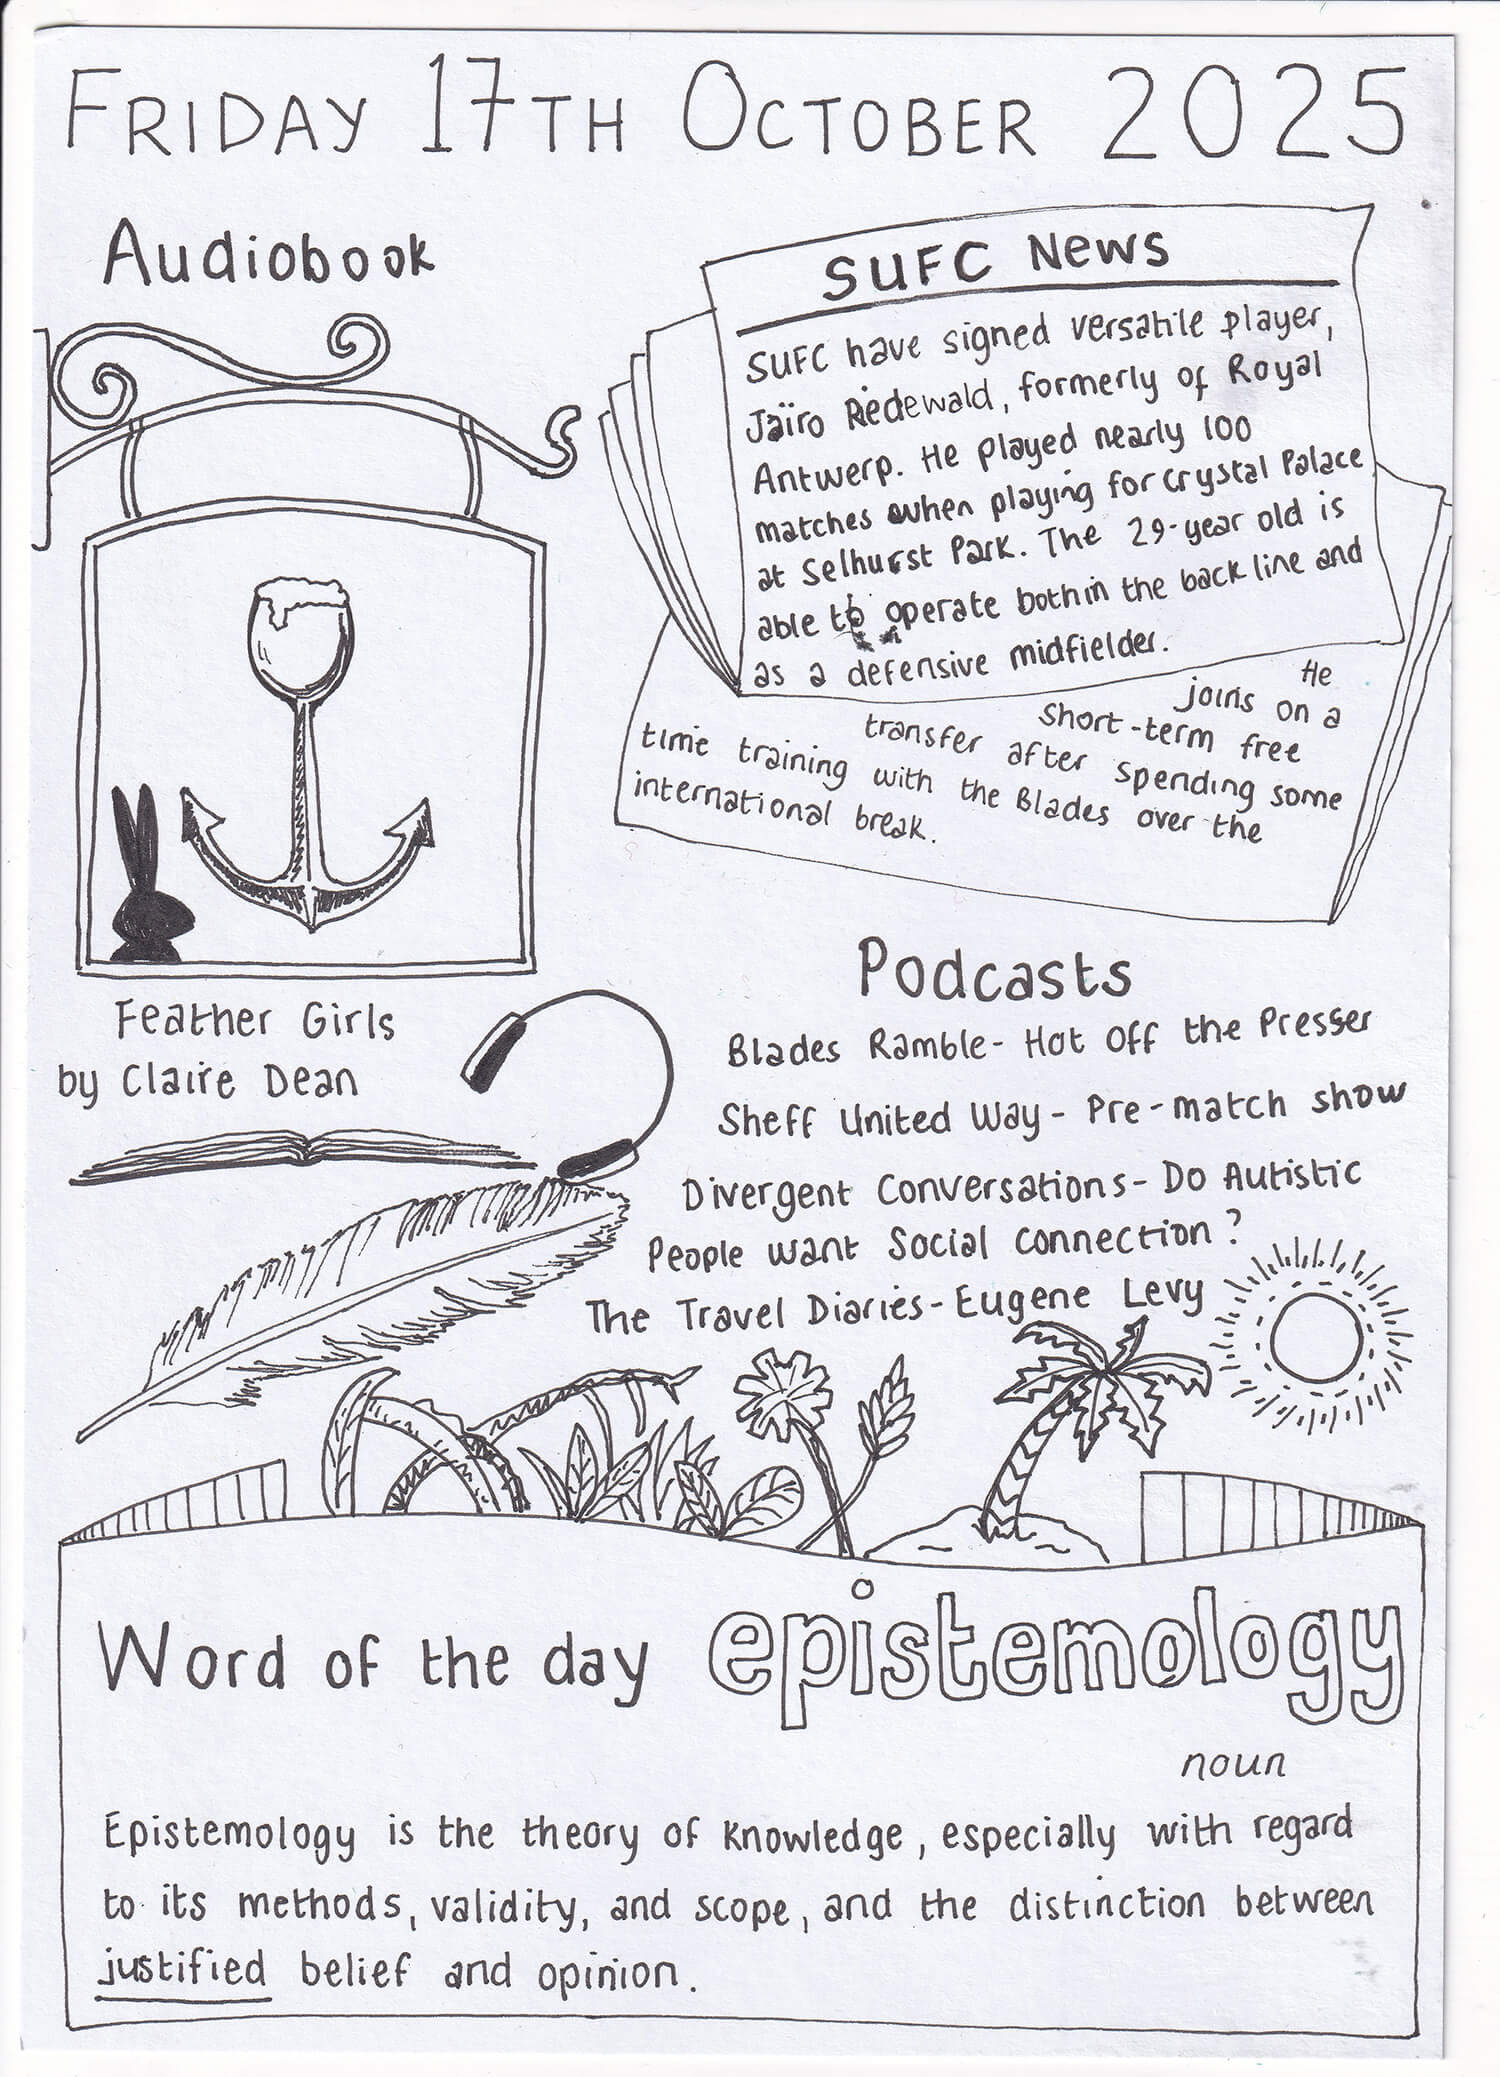 FRIDAY 17TH OCTOBER 2025
Audiobook
SUFC News
SUFC have signed versatile player,
Jaïro Riedewald, formerly of Royal
Antwerp. He played nearly 100
matches when playing for Crystal Palace
at Selhurst Park. The 29-year old is
able to operate both in the back line and
as a defensive midfielder.
He
joins on a
short-term free
transfer after spending some
time training with the Blades over the
international break.
Feather Girls
by Claire Dean
Podcasts
Blades Ramble- Hot Off the Presser
Sheff United Way- Pre-match show
Divergent Conversations- Do Autistic
People want Social connection?
The Travel Diaries-Eugene Levy
Word of the day epistemology
noun
Epistemology is the theory of knowledge, especially with regard
to its methods, validity, and scope, and the distinction between
justified belief and opinion.